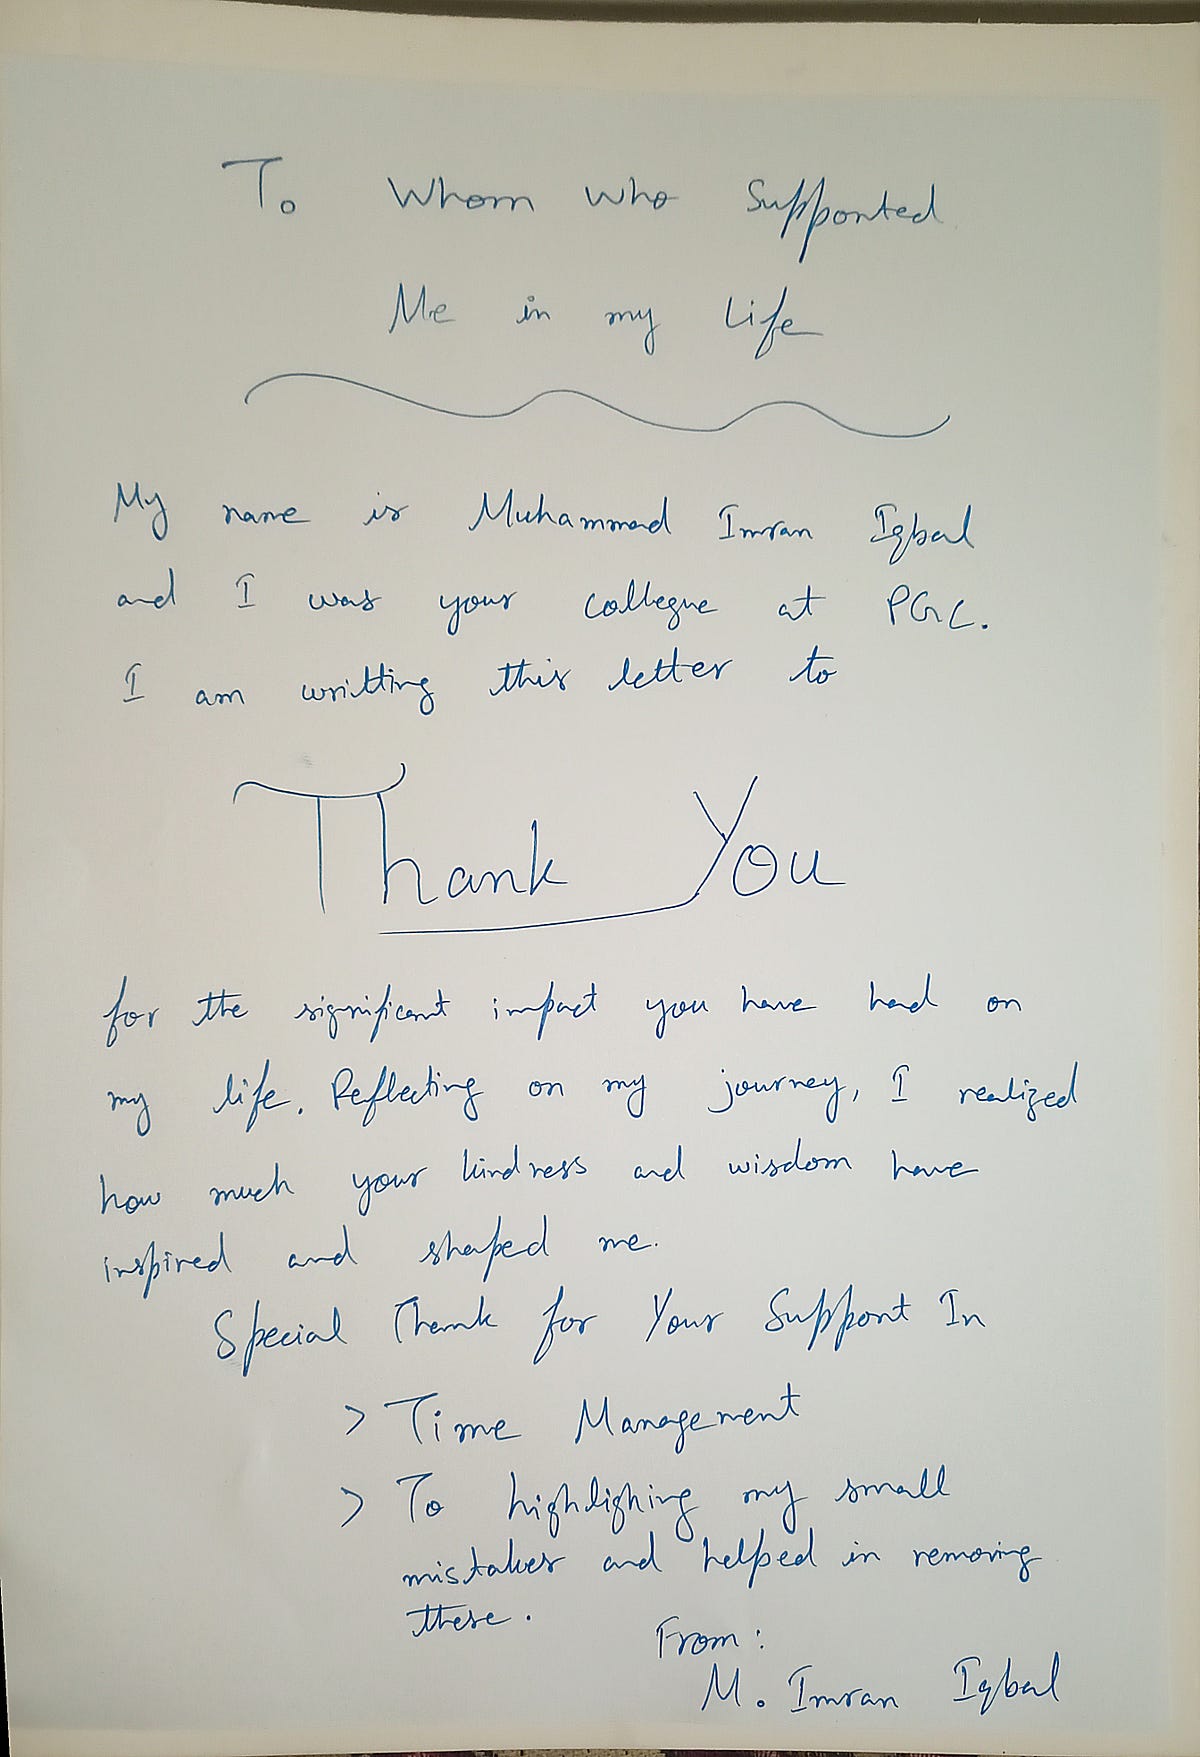 To Whom who Supported
Me in my Life
My name is Muhammad Imran Iqbal
and I was your collegue at PGC.
I am writting this letter to
Thank You
for the significant impact you have had on
my life. Reflecting on my journey, I realized
how much your kindness and wisdom have
inspired and shaped me.
Special Thank for Your Support In
> Time Management
> To highlighing my small
mistakes and helped in removing
these.
From:
M. Imran Iqbal